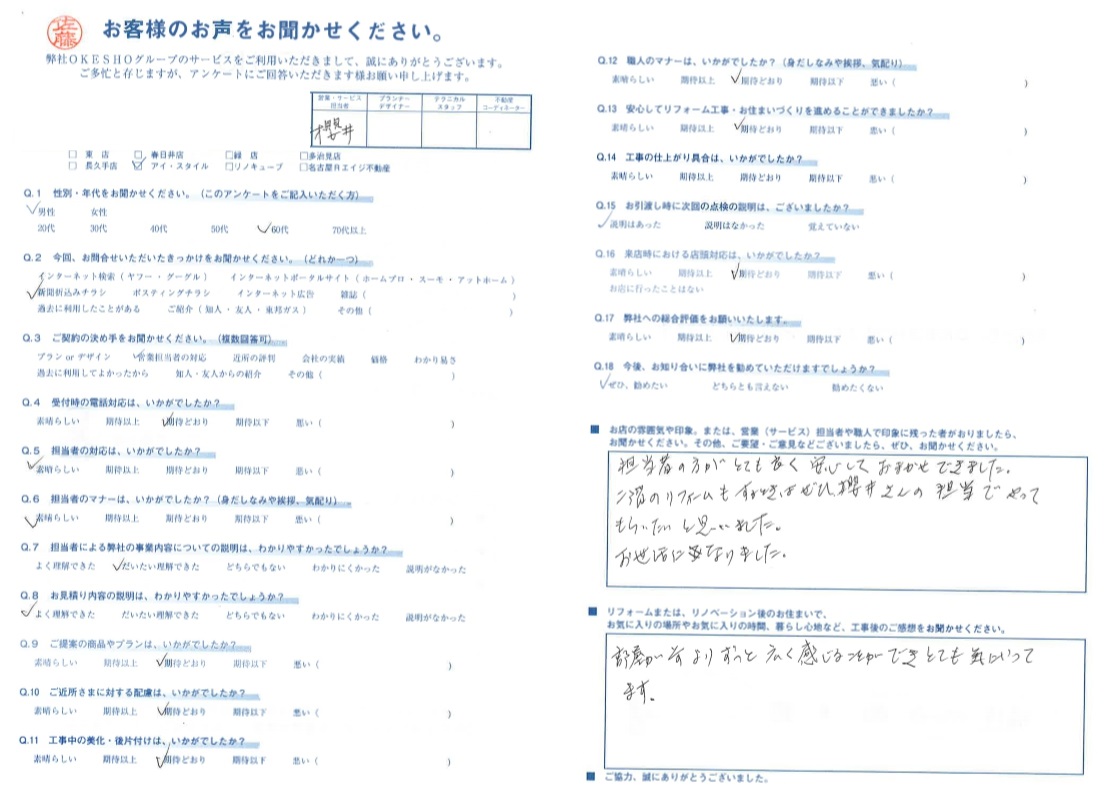 佐藤
お客様のお声をお聞かせください。
弊社OKESHOグループのサービスをご利用いただきまして、誠にありがとうございます。
ご多忙と存じますが、アンケートにご回答いただきます様お願い申し上げます。
営業・サービス担当者 プランナーデザイナー テクニカルスタッフ 不動産コーディネーター
櫻井
□ 東 店 □ 春日井店 □緑 店 □多治見店
□ 長久手店 ☑ アイ・スタイル □リノキューブ □名古屋Rエイジ不動産
Q.1 性別・年代をお聞かせください。（このアンケートをご記入いただく方）
✓男性 女性
20代 30代 40代 50代 ✓60代 70代以上
Q.2 今回、お問合せいただいたきっかけをお聞かせください。（どれか一つ）
インターネット検索（ヤフー・グーグル） インターネットポータルサイト（ホームプロ・スーモ・アットホーム）
✓新聞折込みチラシ ポスティングチラシ インターネット広告 雑誌（ ）
過去に利用したことがある ご紹介（知人・友人・東邦ガス） その他（ ）
Q.3 ご契約の決め手をお聞かせください。（複数回答可）
プラン or デザイン ✓営業担当者の対応 近所の評判 会社の実績 価格 わかり易さ
過去に利用してよかったから 知人・友人からの紹介 その他（ ）
Q.4 受付時の電話対応は、いかがでしたか？
素晴らしい 期待以上 ✓期待どおり 期待以下 悪い（ ）
Q.5 担当者の対応は、いかがでしたか？
✓素晴らしい 期待以上 期待どおり 期待以下 悪い（ ）
Q.6 担当者のマナーは、いかがでしたか？（身だしなみや挨拶、気配り）
✓素晴らしい 期待以上 期待どおり 期待以下 悪い（ ）
Q.7 担当者による弊社の事業内容についての説明は、わかりやすかったでしょうか？
よく理解できた ✓だいたい理解できた どちらでもない わかりにくかった 説明がなかった
Q.8 お見積り内容の説明は、わかりやすかったでしょうか？
✓よく理解できた だいたい理解できた どちらでもない わかりにくかった 説明がなかった
Q.9 ご提案の商品やプランは、いかがでしたか？
素晴らしい 期待以上 ✓期待どおり 期待以下 悪い（ ）
Q.10 ご近所さまに対する配慮は、いかがでしたか？
素晴らしい 期待以上 ✓期待どおり 期待以下 悪い（ ）
Q.11 工事中の美化・後片付けは、いかがでしたか？
素晴らしい 期待以上 ✓期待どおり 期待以下 悪い（ ）
Q.12 職人のマナーは、いかがでしたか？（身だしなみや挨拶、気配り）
素晴らしい 期待以上 ✓期待どおり 期待以下 悪い（ ）
Q.13 安心してリフォーム工事・お住まいづくりを進めることができましたか？
素晴らしい 期待以上 ✓期待どおり 期待以下 悪い（ ）
Q.14 工事の仕上がり具合は、いかがでしたか？
素晴らしい 期待以上 期待どおり 期待以下 悪い（ ）
Q.15 お引渡し時に次回の点検の説明は、ございましたか？
✓説明はあった 説明はなかった 覚えていない
Q.16 来店時における店頭対応は、いかがでしたか？
素晴らしい 期待以上 ✓期待どおり 期待以下 悪い（ ）
お店に行ったことはない
Q.17 弊社への総合評価をお願いいたします。
素晴らしい 期待以上 ✓期待どおり 期待以下 悪い（ ）
Q.18 今後、お知り合いに弊社を勧めていただけますでしょうか？
✓ぜひ、勧めたい どちらとも言えない 勧めたくない
■ お店の雰囲気や印象。または、営業（サービス）担当者や職人で印象に残った者がおりましたら、
お聞かせください。その他、ご要望・ご意見などございましたら、ぜひ、お聞かせください。
担当者の方がとても良く安心しておまかせできました。
2階のリフォームもするときはぜひ櫻井さんの担当でやって
もらいたいと思いました。
お世話になりました。
■ リフォームまたは、リノベーション後のお住まいで、
お気に入りの場所やお気に入りの時間、暮らし心地など、工事後のご感想をお聞かせください。
部屋が前よりずっと広く感じることができとても気にいって
ます。
■ ご協力、誠にありがとうございました。